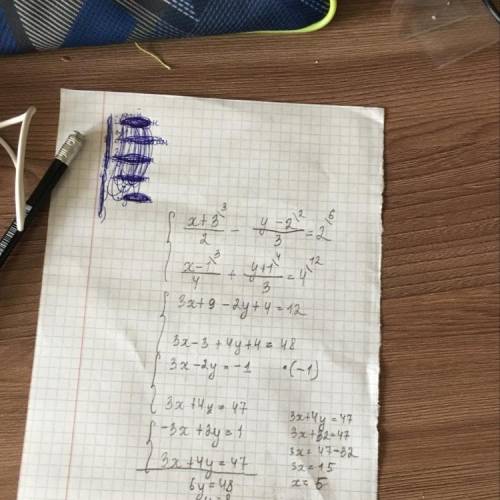 x+3\³/2 - y-2\²/3 = 2\⁶
x-1\³/4 + y+1\⁴/3 = 4\¹²
3x+9-2y+4=12
3x-3+4y+4=48
3x-2y=-1 ·(-1)
3x+4y=47
-3x+2y=1
3x+4y=47
6y=48
y=8
3x+4y=47
3x+32=47
3x=47-32
3x=15
x=5